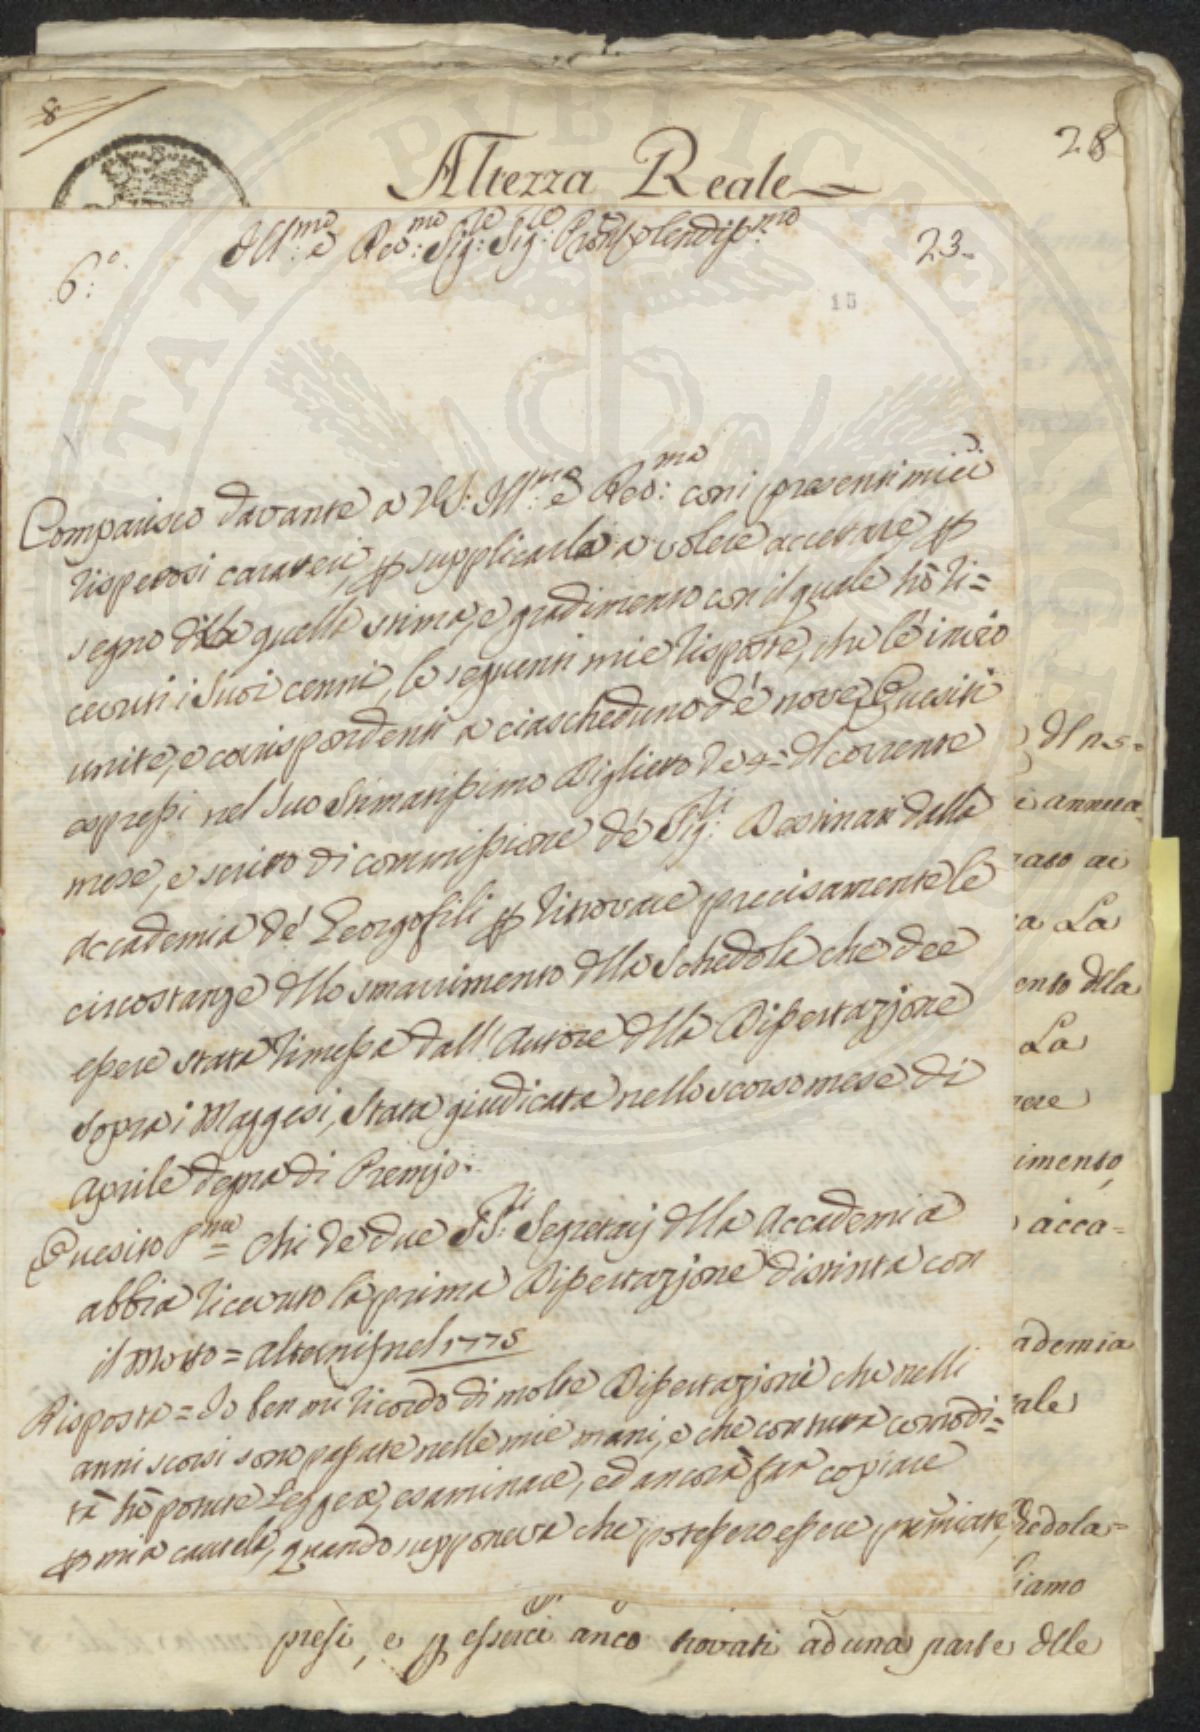 8
28
Altezza Reale
Ill.mo e Rev.mo Sig.re Sig.re Pron Colendiss.mo
6.o
23.
15
Comparisco davante a VS. Ill.ma e Rev.ma con i presenti miei
rispettosi caratteri, p supplicarla a volere accettare, p
segno di quella stima, e gradimento con il quale hò ri=
cevuti i Suoi cenni, le seguenti mie risposte, che le invio
unite, e corrispondenti a ciascheduno dé nove Quesiti
espressi nel Suo Stimatissimo Biglietto de 4= dl corrente
mese, e scritto di commissione dé Sig.ri Destinati dalla
Accademia dé Georgofili p ritrovare precisamente le
circostanze dllo smarrimento dlla Schedola che dee
essere stata rimessa dall'Autore dlla Dissertazione
sopra i Maggesi, Stata giudicata nello scorso mese di
Aprile degna di Premio.
Quesito pmo = Chi dé due SS.ri Segretarj dlla Accademia
abbia ricevuto la prima Dissertazione distinta con
il Motto = Alternis nel 1775
Risposta = Io ben mi ricordo di molte Dissertazioni che nelli
anni scorsi sono passate nelle mie mani, e che con tutta comodi=
tà hò potute Leggere, esaminare, ed ancora far copiare
p mia cautela, quando supponeva che potessero essere premiate,
presi, e p esserci anco trovati ad una parte dlle
dl n.5.
annessa
La
ento dlla
La
imento,
acca=
ademia
ale
hedola=
iamo
PUBLICAE